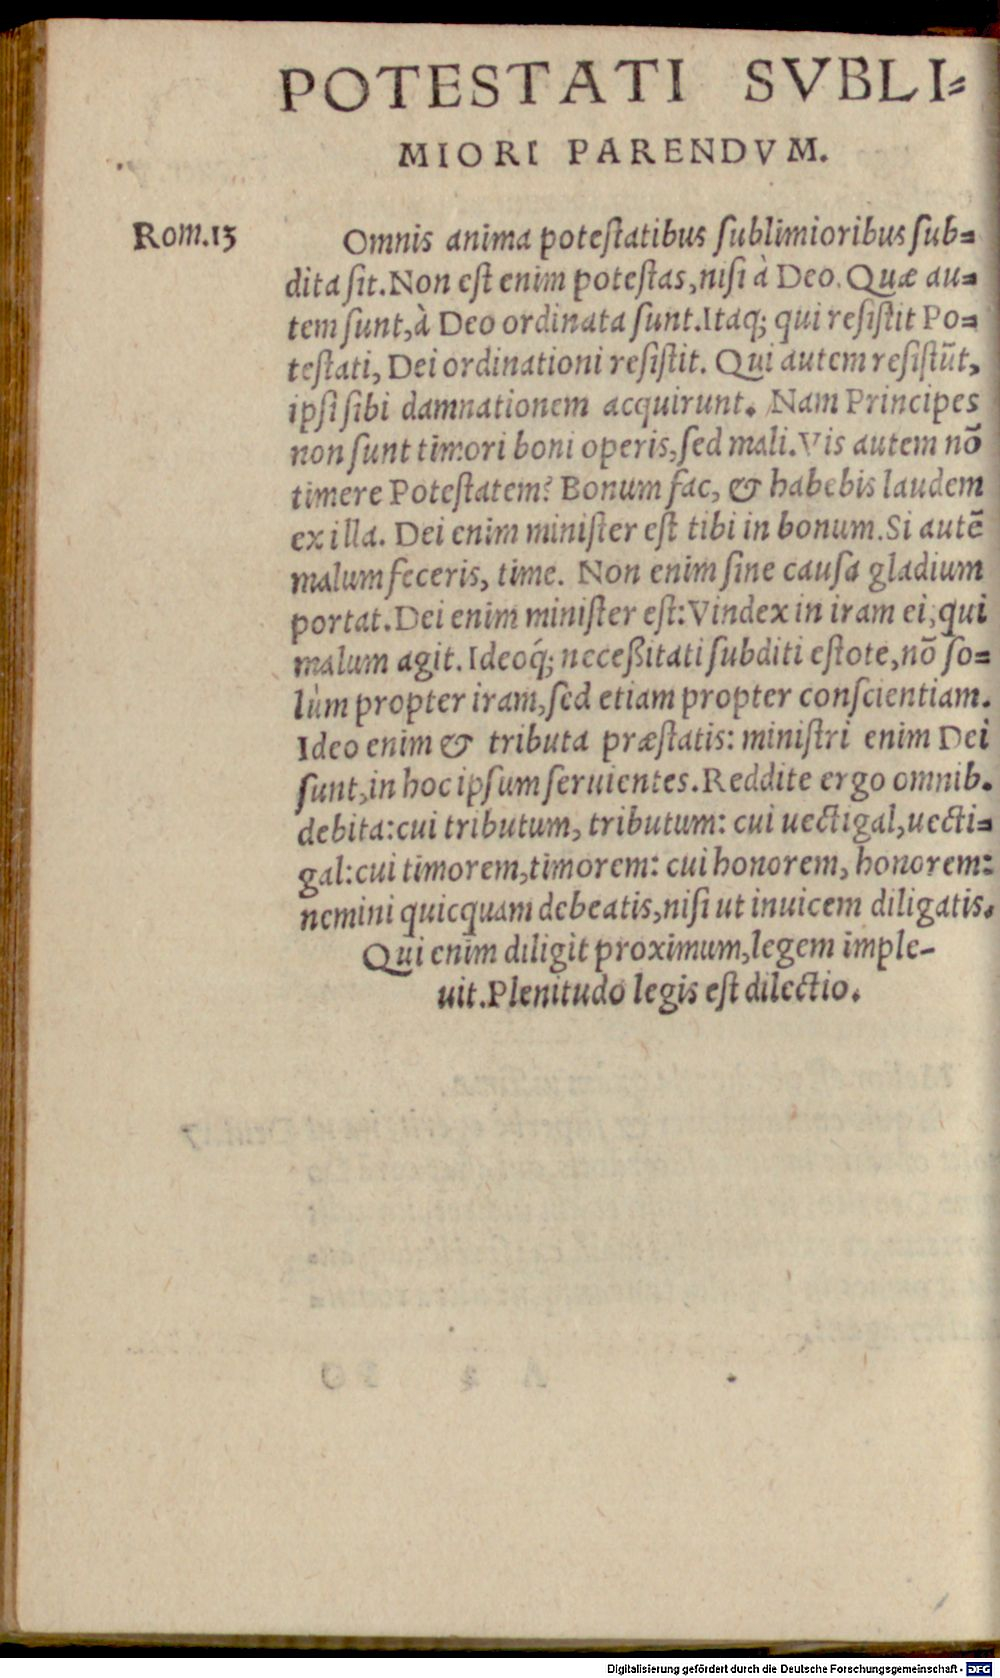 POTESTATI SVBLI=
MIORI PARENDVM.
Rom.13
Omnis anima poteſtatibus ſublimioribus ſub=
dita ſit. Non eſt enim poteſtas, niſi à Deo. Quæ au=
tem ſunt, à Deo ordinata ſunt. Itaq; qui reſiſtit Po=
teſtati, Dei ordinationi reſiſtit. Qui autem reſiſtūt,
ipſi ſibi damnationem acquirunt. Nam Principes
non ſunt timori boni operis, ſed mali. Vis autem nō
timere Poteſtatem? Bonum fac, & habebis laudem
ex illa. Dei enim miniſter eſt tibi in bonum. Si autē
malum feceris, time. Non enim ſine cauſa gladium
portat. Dei enim miniſter eſt: Vindex in iram ei, qui
malum agit. Ideoq́; neceßitati ſubditi eſtote, nō ſo=
lùm propter iram, ſed etiam propter conſcientiam.
Ideo enim & tributa præſtatis: miniſtri enim Dei
ſunt, in hoc ipſum ſeruientes. Reddite ergo omnib.
debita: cui tributum, tributum: cui uectigal, uecti=
gal: cui timorem, timorem: cui honorem, honorem:
nemini quicquam debeatis, niſi ut inuicem diligatis.
Qui enim diligit proximum, legem imple-
uit. Plenitudo legis eſt dilectio.
Digitalisierung gefördert durch die Deutsche Forschungsgemeinschaft - DFG